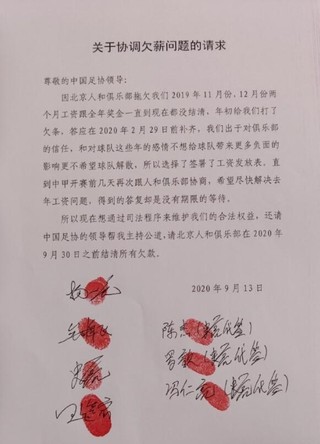 关于协调欠薪问题的请求
尊敬的中国足协领导：
因北京人和俱乐部拖欠我们2019年11月份、12月份两
个月工资跟全年奖金一直到现在都没结清，年初给我们打了
欠条，答应在2020年2月29日前补齐，我们出于对俱乐部
的信任，和对球队这些年的感情不想给球队带来更多负面的
影响更不希望球队解散，所以选择了签署了工资发放表。直
到中甲开赛前几天再次跟人和俱乐部协商，希望尽快解决去
年工资问题，得到的答复却是没有期限的等待。
所以现在想通过司法程序来维护我们的合法权益，还请
中国足协的领导帮我主持公道，请北京人和俱乐部在2020年
9月30日之前结清所有欠款。
2020年9月13日
陈
冯仁亮